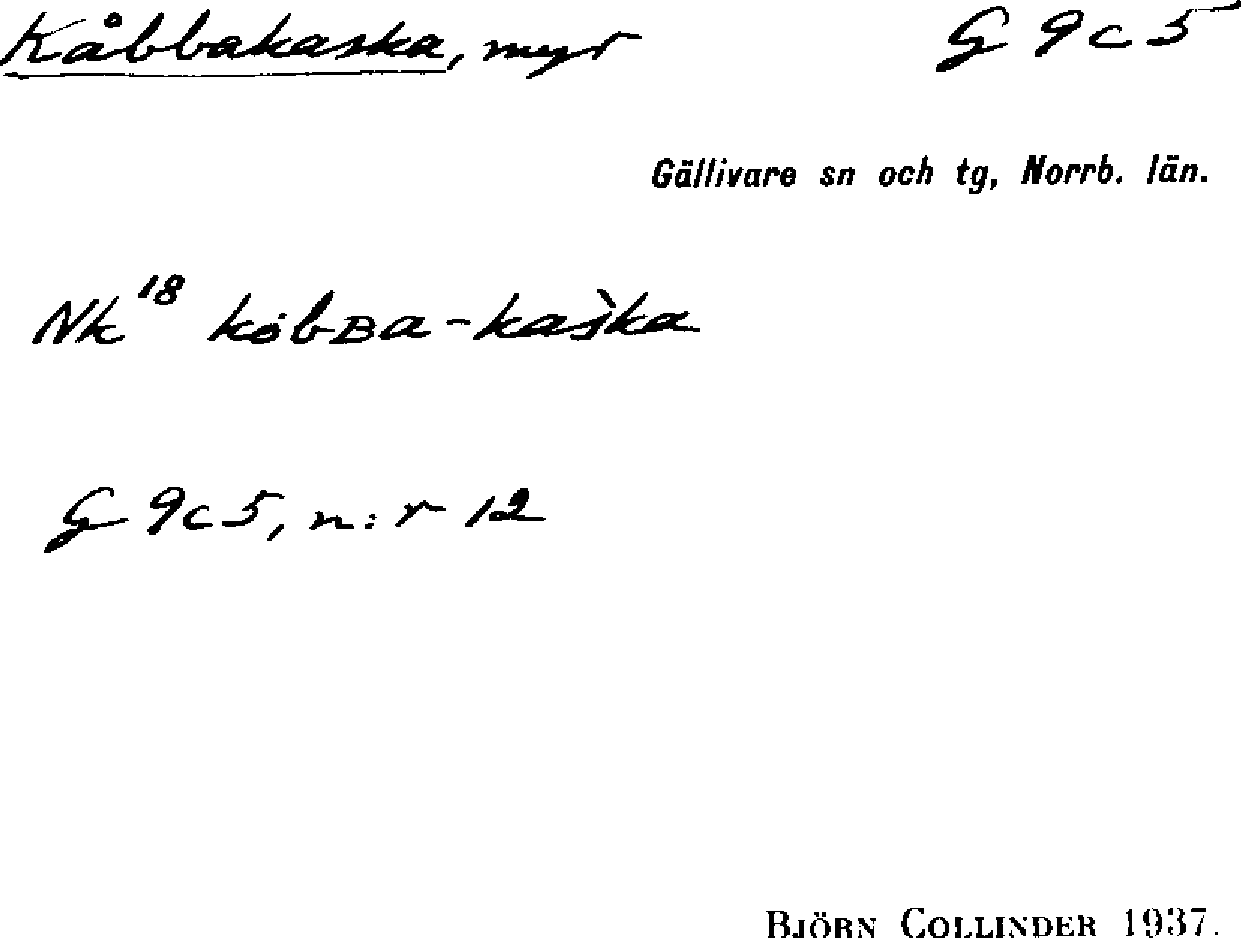 Kåbbakaska, myr G 9c5
Gällivare sn och tg, Norrb. län.
Nk¹⁸ kȯbʙa-kaška
G 9c5, n:r 12
BJÖRN COLLINDER 1937.